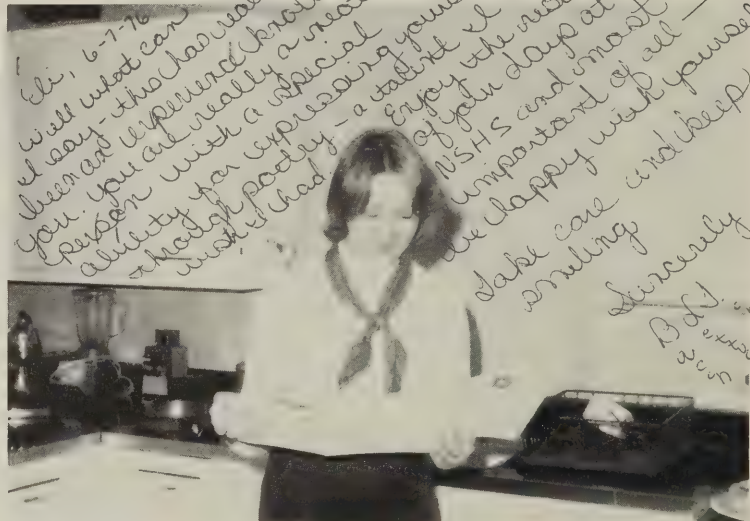 Eli, 6-7-76
Well what can
I say - this has rea
been an experiend know
you. you are really a neat
person with a special
ability for expressing yourse
through poetry - a talent I
wish I had. Enjoy the res
of your days at
NSHS and most
important of all —
be happy with yourse
Take care and keep
smiling
Sincerely